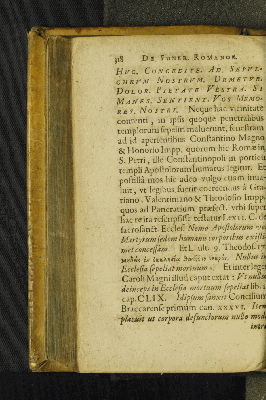 318 DE FUNER. ROMANOR.
HUC. CONCEDITE. AD. SEPUL-
CHRUM NOSTRUM. DEMETUR.
DOLOR. PIETATE VESTRA. SI
MANES. SENTIENT. VOS MEMO-
RES. NOSTRI. Neque hac vicinitate
contenti, in ipsis quoque penetralibus
templorum sepeliri maluerunt, fenestram
ad id aperientibus Constantino Magno
& Honorio Impp. quorum hic Romæ in
S. Petri, ille Constantinopoli in porticu
templi Apostolorum humatus legitur. Et
posteà mos hic adeo vulgo etiam
lui, ut legibus fuerit coercendus à Gra-
tiano, Valentiniano & Theodosio Impp.
quos ad Pancratium præfect. urbi super
hac re ita rescripsisse testatur l. 2. C. de
sacrosanct. Eccles. Nemo Apostolorum vel
Martyrum sedem humanis corporibus existimet
concessam. Et
Ecclesia sepeliat mortuum. Et inter leges
Caroli Magni illius caput extat: Ut nullus
deinceps in Ecclesia mortuum sepeliat lib. 1.
cap. CLIX. Idipsum sanxit Concilium
Braccarense primum can. XXXVI. Item
placuit ut corpora defunctorum nullo modo
intra